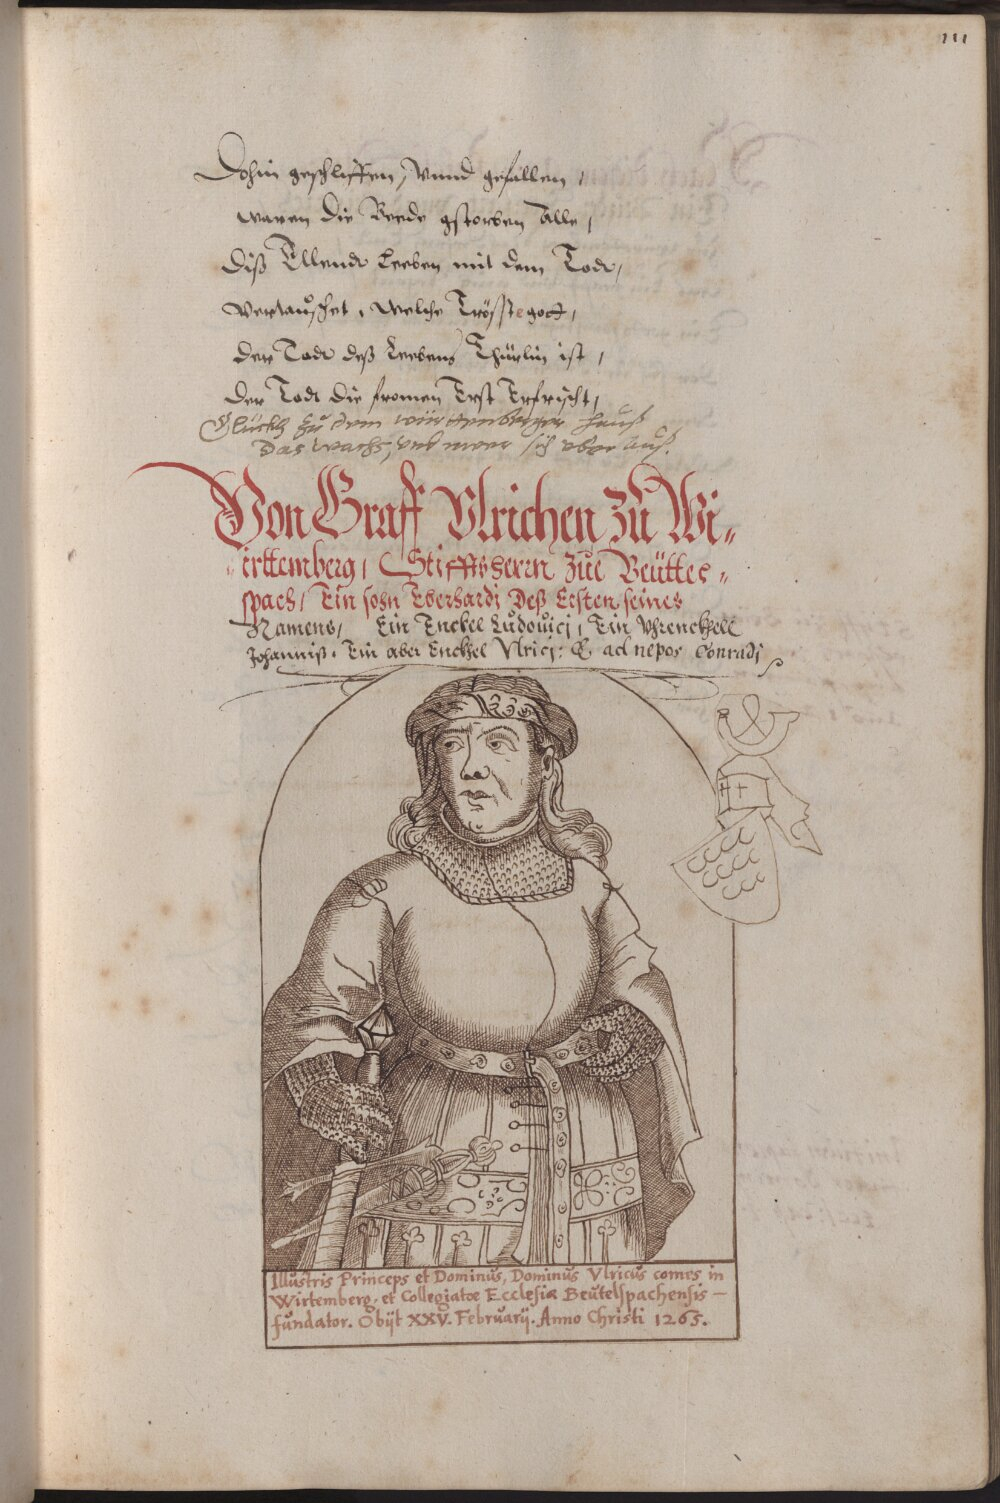 111
Dohin geschliffen, Vnnd gefallen,
waren die Beede gstorben Alle,
diß Ellendt Leeben mit dem Todt,
Vertauschet, welche Tröste gott,
der Todt deß Leebens Thürlin ist,
der Todt die fromen Erst Erfrischt,
Glückh zů dem württemberger hauß
das wachs, vnd meer sich vber auß.
Von Graff Vlrichen zů Wi„
„irttemberg, Stifftsherrn zue Beüttel„
spach, Ein sohn Eberhardj deß Ersten seines
Namens, Ein Enckel Ludouicj, Ein Vhrenckhell
Johanniß. Ein aber Enckhel Vlricj: & ad nepos Conradj
Illustris Princeps et Dominus, Dominus Vlricus comes in
Wirtemberg, et Collegiatæ Ecclesiæ Beutelspachensis —
fundator. Obijt XXV. Februarij. Anno Christi 1265.